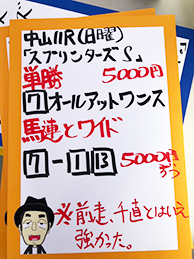 中山11R(日曜)
「スプリンターズS」
単勝 5000円
7 オールアットワンス
馬連とワイド
7-1 13 5000円
ずつ
※前走、千直とはいえ
強かった。